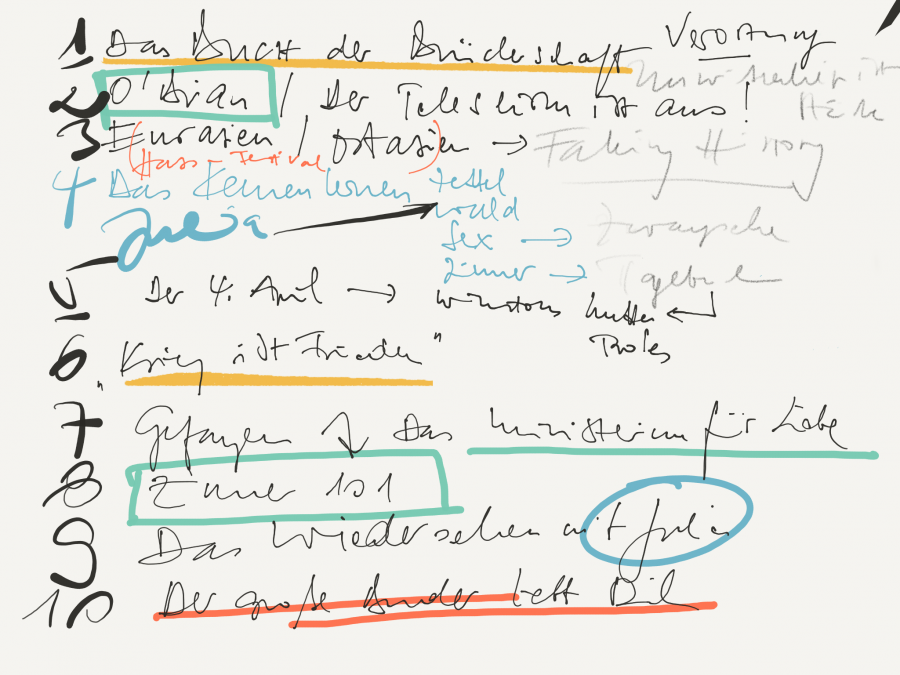 1 Das Buch der Brüderschaft
2 O'Brian / Der Teleshirm ist aus!
3 Eurasien / Ostasien → Faking History
(Hass-Festival)
4 Das Kennenlernen Zettel
Julia → Wald
Sex →
Zimmer →
5 Der 4. April → Winstons Mutter ←
Proles
6 „Krieg ist Frieden"
7 Gefangen Das Ministerium für Liebe
8 Zimmer 101
9 Das Wiedersehen mit Julia
10 Der große Bruder